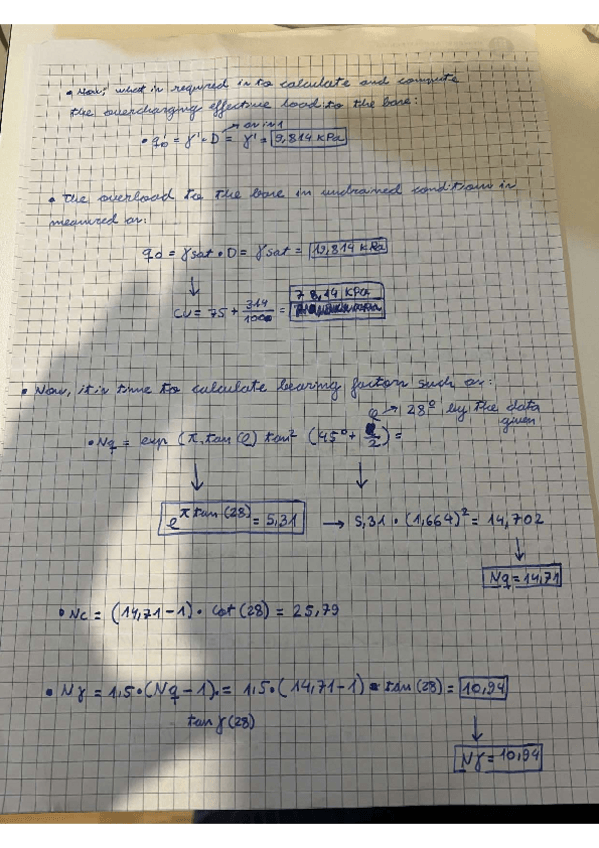 • Now, what is required is to calculate and compute
the overcharging effective load to the base:
→ as is 1
• q'o = γ' · D = γ' = 9,814 kPa
• The overload to the base in undrained conditions is
measured as:
qo = γsat · D = γsat = 19,814 kPa
↓
cu = 75 + 314/100 = 78,14 kPa
• Now, it is time to calculate bearing factors such as:
φ → 28° by the data
given
• Nq = exp (π, tan φ) tan² (45° + φ/2) =
↓ ↓
e^π tan (28) = 5,31 → 5,31 · (1,664)² = 14,702
↓
Nq = 14,71
• Nc = (14,71 - 1) · cot (28) = 25,79
• Nγ = 1,5 · (Nq - 1) · = 1,5 · (14,71 - 1) · tan (28) = 10,94
tan γ (28)
↓
Nγ = 10,94